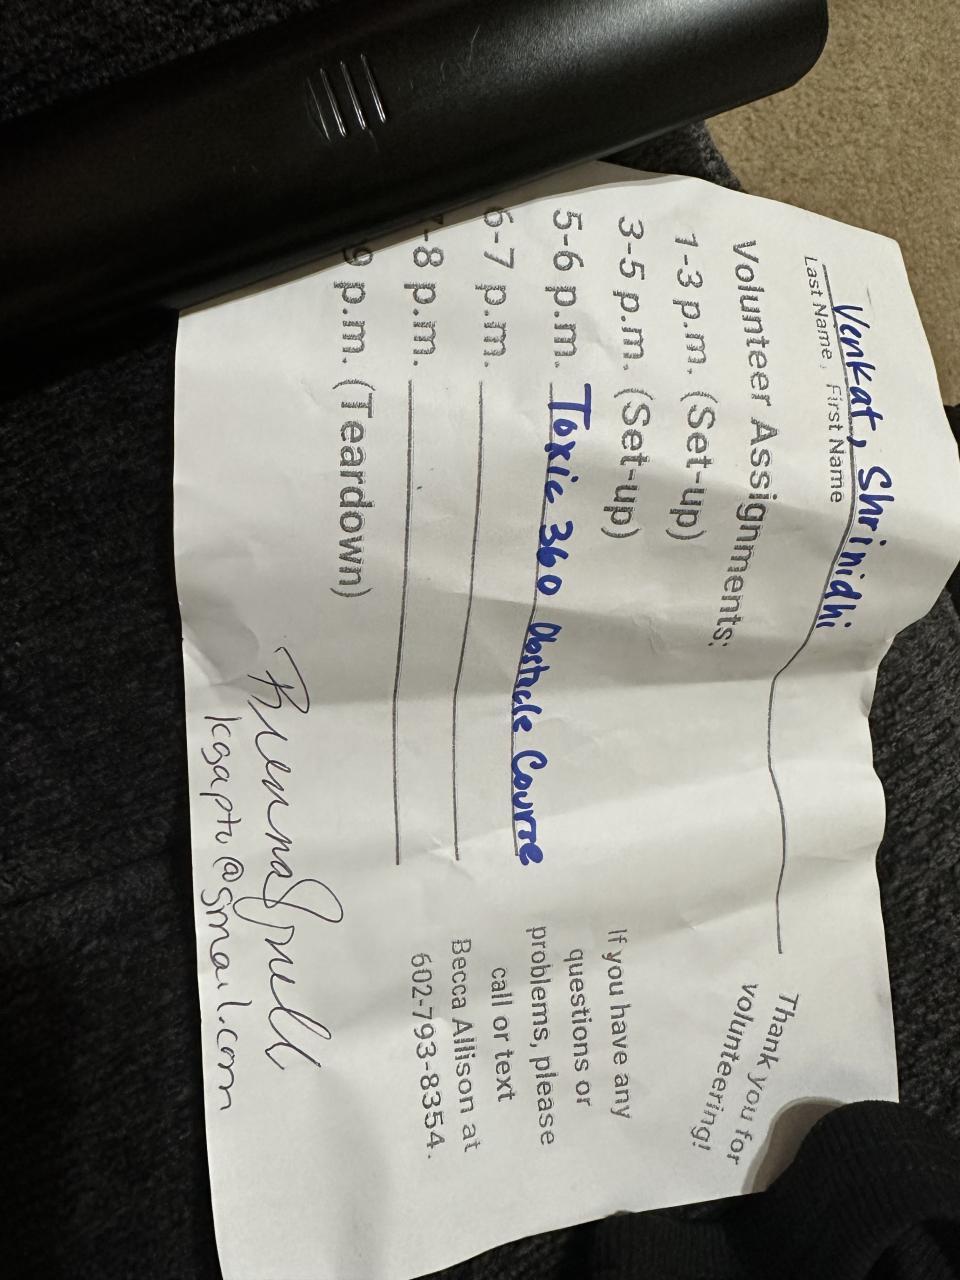 Venkat, Shrinidhi
Last Name, First Name
Thank you for
volunteering!
Volunteer Assignments:
1-3 p.m. (Set-up)
3-5 p.m. (Set-up)
5-6 p.m. Toxic 360 Obstacle Course
6-7 p.m.
7-8 p.m.
9 p.m. (Teardown)
If you have any
questions or
problems, please
call or text
Becca Allison at
602-793-8354.
Brenna
@gmail.com